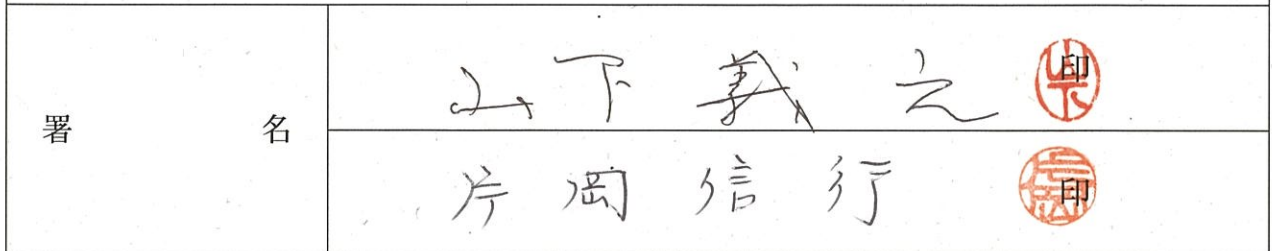 署名
山下義之 印
片岡信行 印